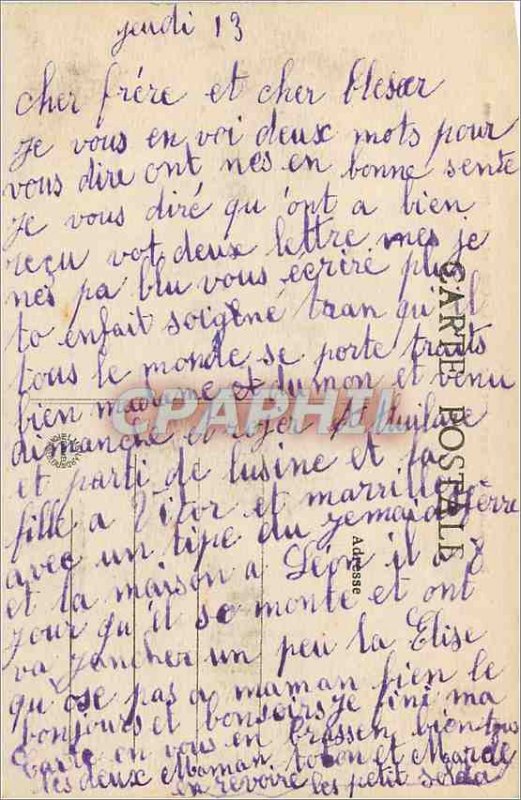 jeudi 13
cher frére et cher blesœr
je vous en voi deux mots pour
vous dire ont nes en bonne sente
je vous diré qu'ont a bien
reçu vot deux lettre mes je
nes pa blu vous écriré plu
to enfait soigéné tran qu'il
tous le monde se porte traits
bien madame et dumon et venu
dimanche et
et parti de lusine et fa
fille a et marrille
avec un tipe du
et la maison a Léon il a 8
jour qu'il se monte et ont
va un peu la Elise
qu ose pas a maman bien le
bonjours et bonsoirs je fini ma
Carte en vous en brassen bien tous
les deux Maman toton et Marcel
en revoire les petit
CARTE POSTALE
Adresse
CPAPHIL